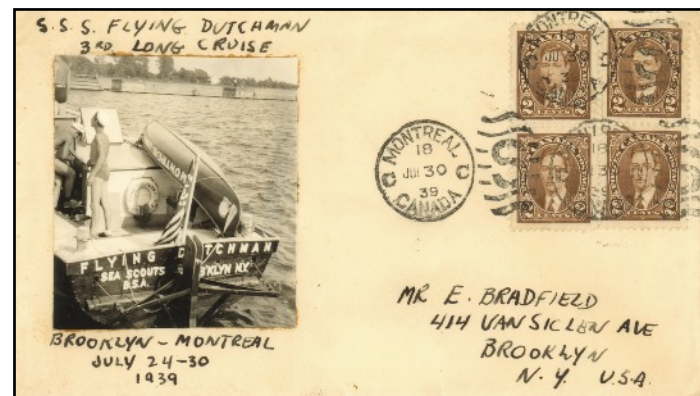 S.S.S. FLYING DUTCHMAN
3RD LONG CRUISE
FLYING D TCHMAN
SEA SCOUTS B KLYN N.Y.
B.S.A.
BROOKLYN - MONTREAL
JULY 24-30
1939
MONTREAL
18
JUL 30
39
CANADA
MONTREAL
18
CANADA
2 2
2 2
MR E. BRADFIELD
414 VAN SICLEN AVE
BROOKLYN
N.Y. U.S.A.